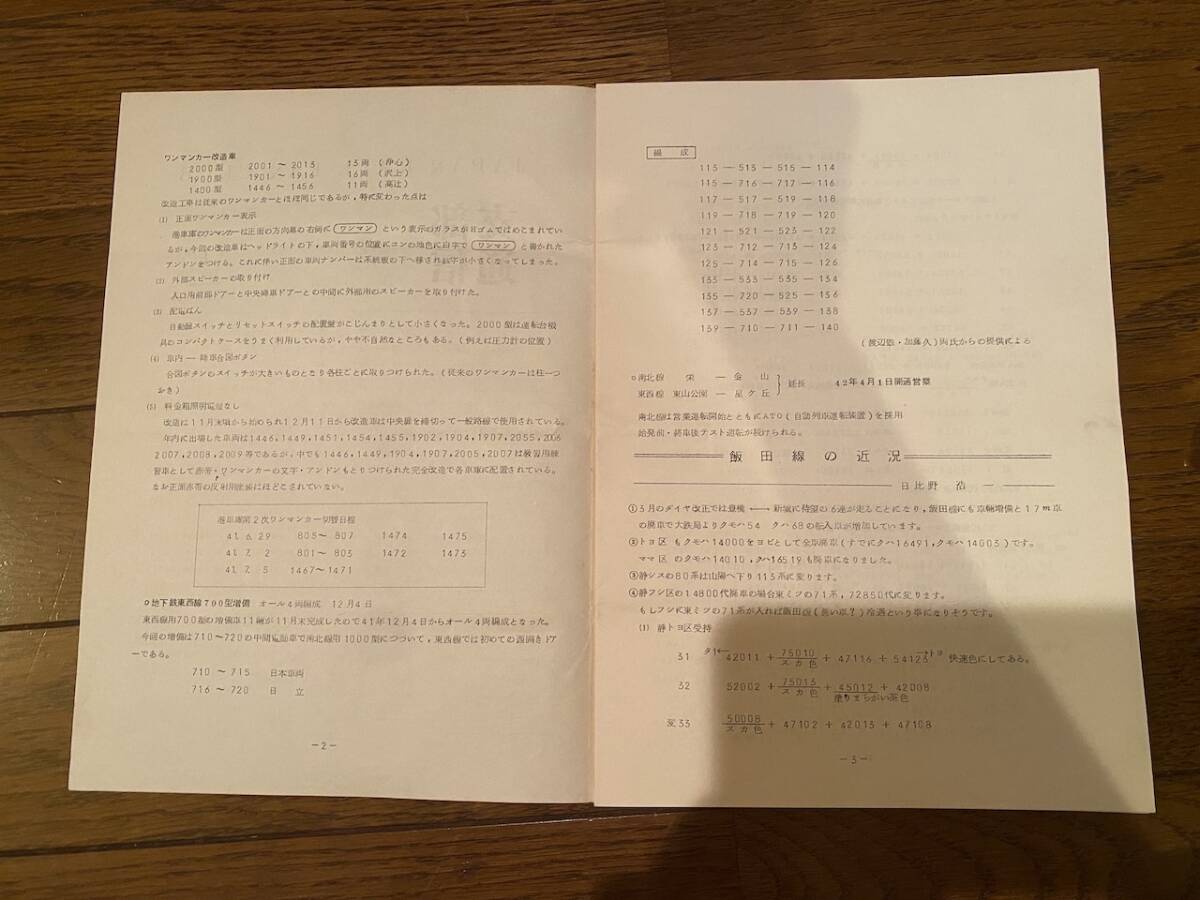 ワンマンカー改造車
2000型 2001～2015 15両 (浄心)
1900型 1901～1916 16両 (沢上)
1400型 1446～1456 11両 (高辻)
改造工事は従来のワンマンカーとほぼ同じであるが，特に変わった点は
(1) 正面ワンマンカー表示
巻車庫のワンマンカーは正面の方向幕の右側に ワンマン という表示のガラスがHゴムではめこまれてい
るが，今回の改造車はヘッドライトの下，車両番号の位置にコンの地色に白字で ワンマン と書かれた
アンドンをつける。これに伴い正面の車両ナンバーは系統板の下へ移され数字が小さくなってしまった。
(2) 外部スピーカーの取り付け
入口用前部ドアーと中央降車ドアーとの中間に外部用のスピーカーを取り付けた。
(3) 配電ばん
自動盤スイッチとリセットスイッチの配置盤がこじんまりとして小さくなった。2000型は運転台機
具のコンパクトケースをうまく利用しているが，やや不自然なところもある。(例えば圧力計の位置)
(4) 車内―降車合図ボタン
合図ボタンのスイッチが大きいものとなり各柱ごとに取りつけられた。(従来のワンマンカーは柱一つ
おき)
(5) 料金箱照明電燈なし
改造は11月末頃から始められ12月11日から改造車は中央扉を締切って一般路線で使用されている。
年内に出場した車両は1446,1449,1451,1454,1455,1902,1904,1907,2055,2006
2007,2008,2009等であるが，中でも1446,1449,1904,1907,2005,2007は教習用練
習車として赤帯・ワンマンカーの文字・アンドンもとりつけられた完全改造で各車庫に配置されている。
なお正面赤帯の反射用塗装はほどこされていない。
巻車庫第2次ワンマンカー切替日程
41. 6. 29 805～807 1474 1475
41. 7. 2 801～803 1472 1473
41. 7. 5 1467～1471
○地下鉄東西線700型増備 オール4両編成 12月4日
東西線用700型の増備車11輛が11月末完成したので41年12月4日からオール4両編成となった。
今回の増備は710～720の中間電動車で南北線用1000型につづいて，東西線では初めての両開きドア
ーである。
710～715 日本車両
716～720 日立
－2－
編成
113－513－515－114
115－716－717－116
117－517－519－118
119－718－719－120
121－521－523－122
123－712－713－124
125－714－715－126
133－533－535－134
135－720－525－136
137－537－539－138
139－710－711－140
(渡辺 ・加藤久)両氏からの提供による
○南北線 栄―金山
東西線 東山公園―星ケ丘
延長 42年4月1日開通営業
南北線は営業運転開始とともにATO(自動列車運転装置)を採用
始発前・終車後テスト運転が続けられる。
飯田線の近況
日比野浩一
①3月のダイヤ改正では豊橋←→新城に待望の6連が走ることになり，飯田線にも車輛増備と17m車
の廃車で大鉄局よりクモハ54 クハ68の転入車が増加しています。
②トヨ区もクモハ14000をヨビとして全車廃車(すでにクハ16491，クモハ14003)です。
ママ区のクモハ14010，クハ16519も廃車になりました。
③静シスの80系は山陽へ下り113系に変ります。
④静フシ区の14800代廃車の場合東ミツの71系，72850代に変ります。
もしフシに東ミツの71系が入れば飯田線(長い車？)冷遇という事になりそうです。
(1) 静トヨ区受持
31 タ1← 42011＋75010 スカ色＋47116＋54123 →トヨ 快速色にしてある。
32 52002＋75013 スカ色＋45012 塗りまちがい茶色＋42008
変33 50008 スカ色＋47102＋42013＋47108
－3－